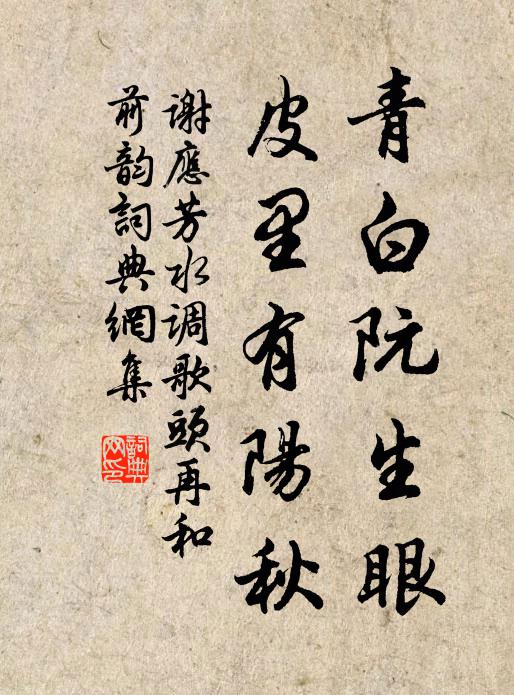 青白阮生眼
皮里有陽秋
謝應芳水调歌頭再和
前韵詞典網集
詞典网印